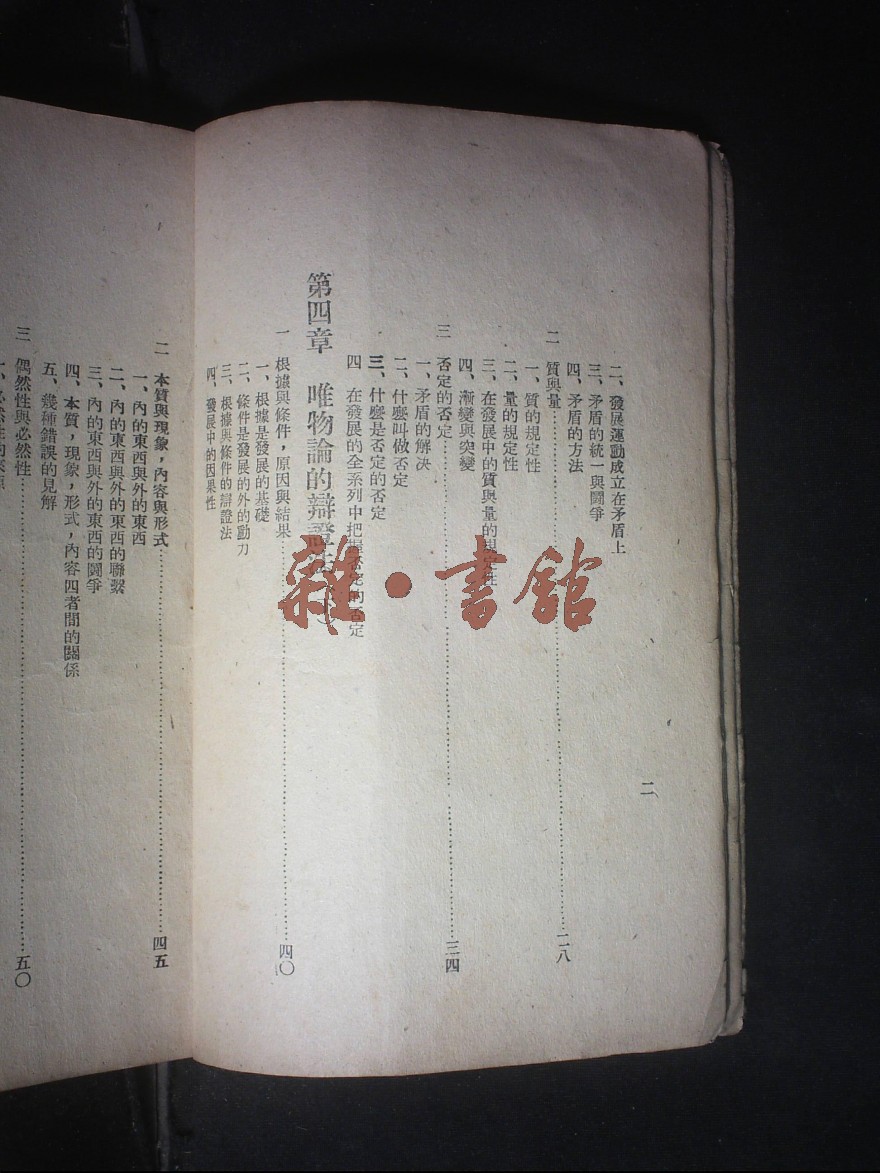 二
二、發展運動成立在矛盾上
三、矛盾的統一與鬪爭
四、矛盾的方法
二 質與量……二八
一、質的規定性
二、量的規定性
三、在發展中的質與量的規定性
四、漸變與突變
三 否定的否定……三四
一、矛盾的解決
二、什麼叫做否定
三、什麼是否定的否定
四 在發展的全系列中把握否定的否定
第四章 唯物論的辯證
一 根據與條件，原因與結果……四〇
一、根據是發展的基礎
二、條件是發展的外的動力
三、根據與條件的辯證法
四、發展中的因果性
二 本質與現象，內容與形式……四五
一、內的東西與外的東西
二、內的東西與外的東西的聯繫
三、內的東西與外的東西的鬪爭
四、本質，現象，形式，內容四者間的關係
五、幾種錯誤的見解
三 偶然性與必然性……五〇
雜·書館